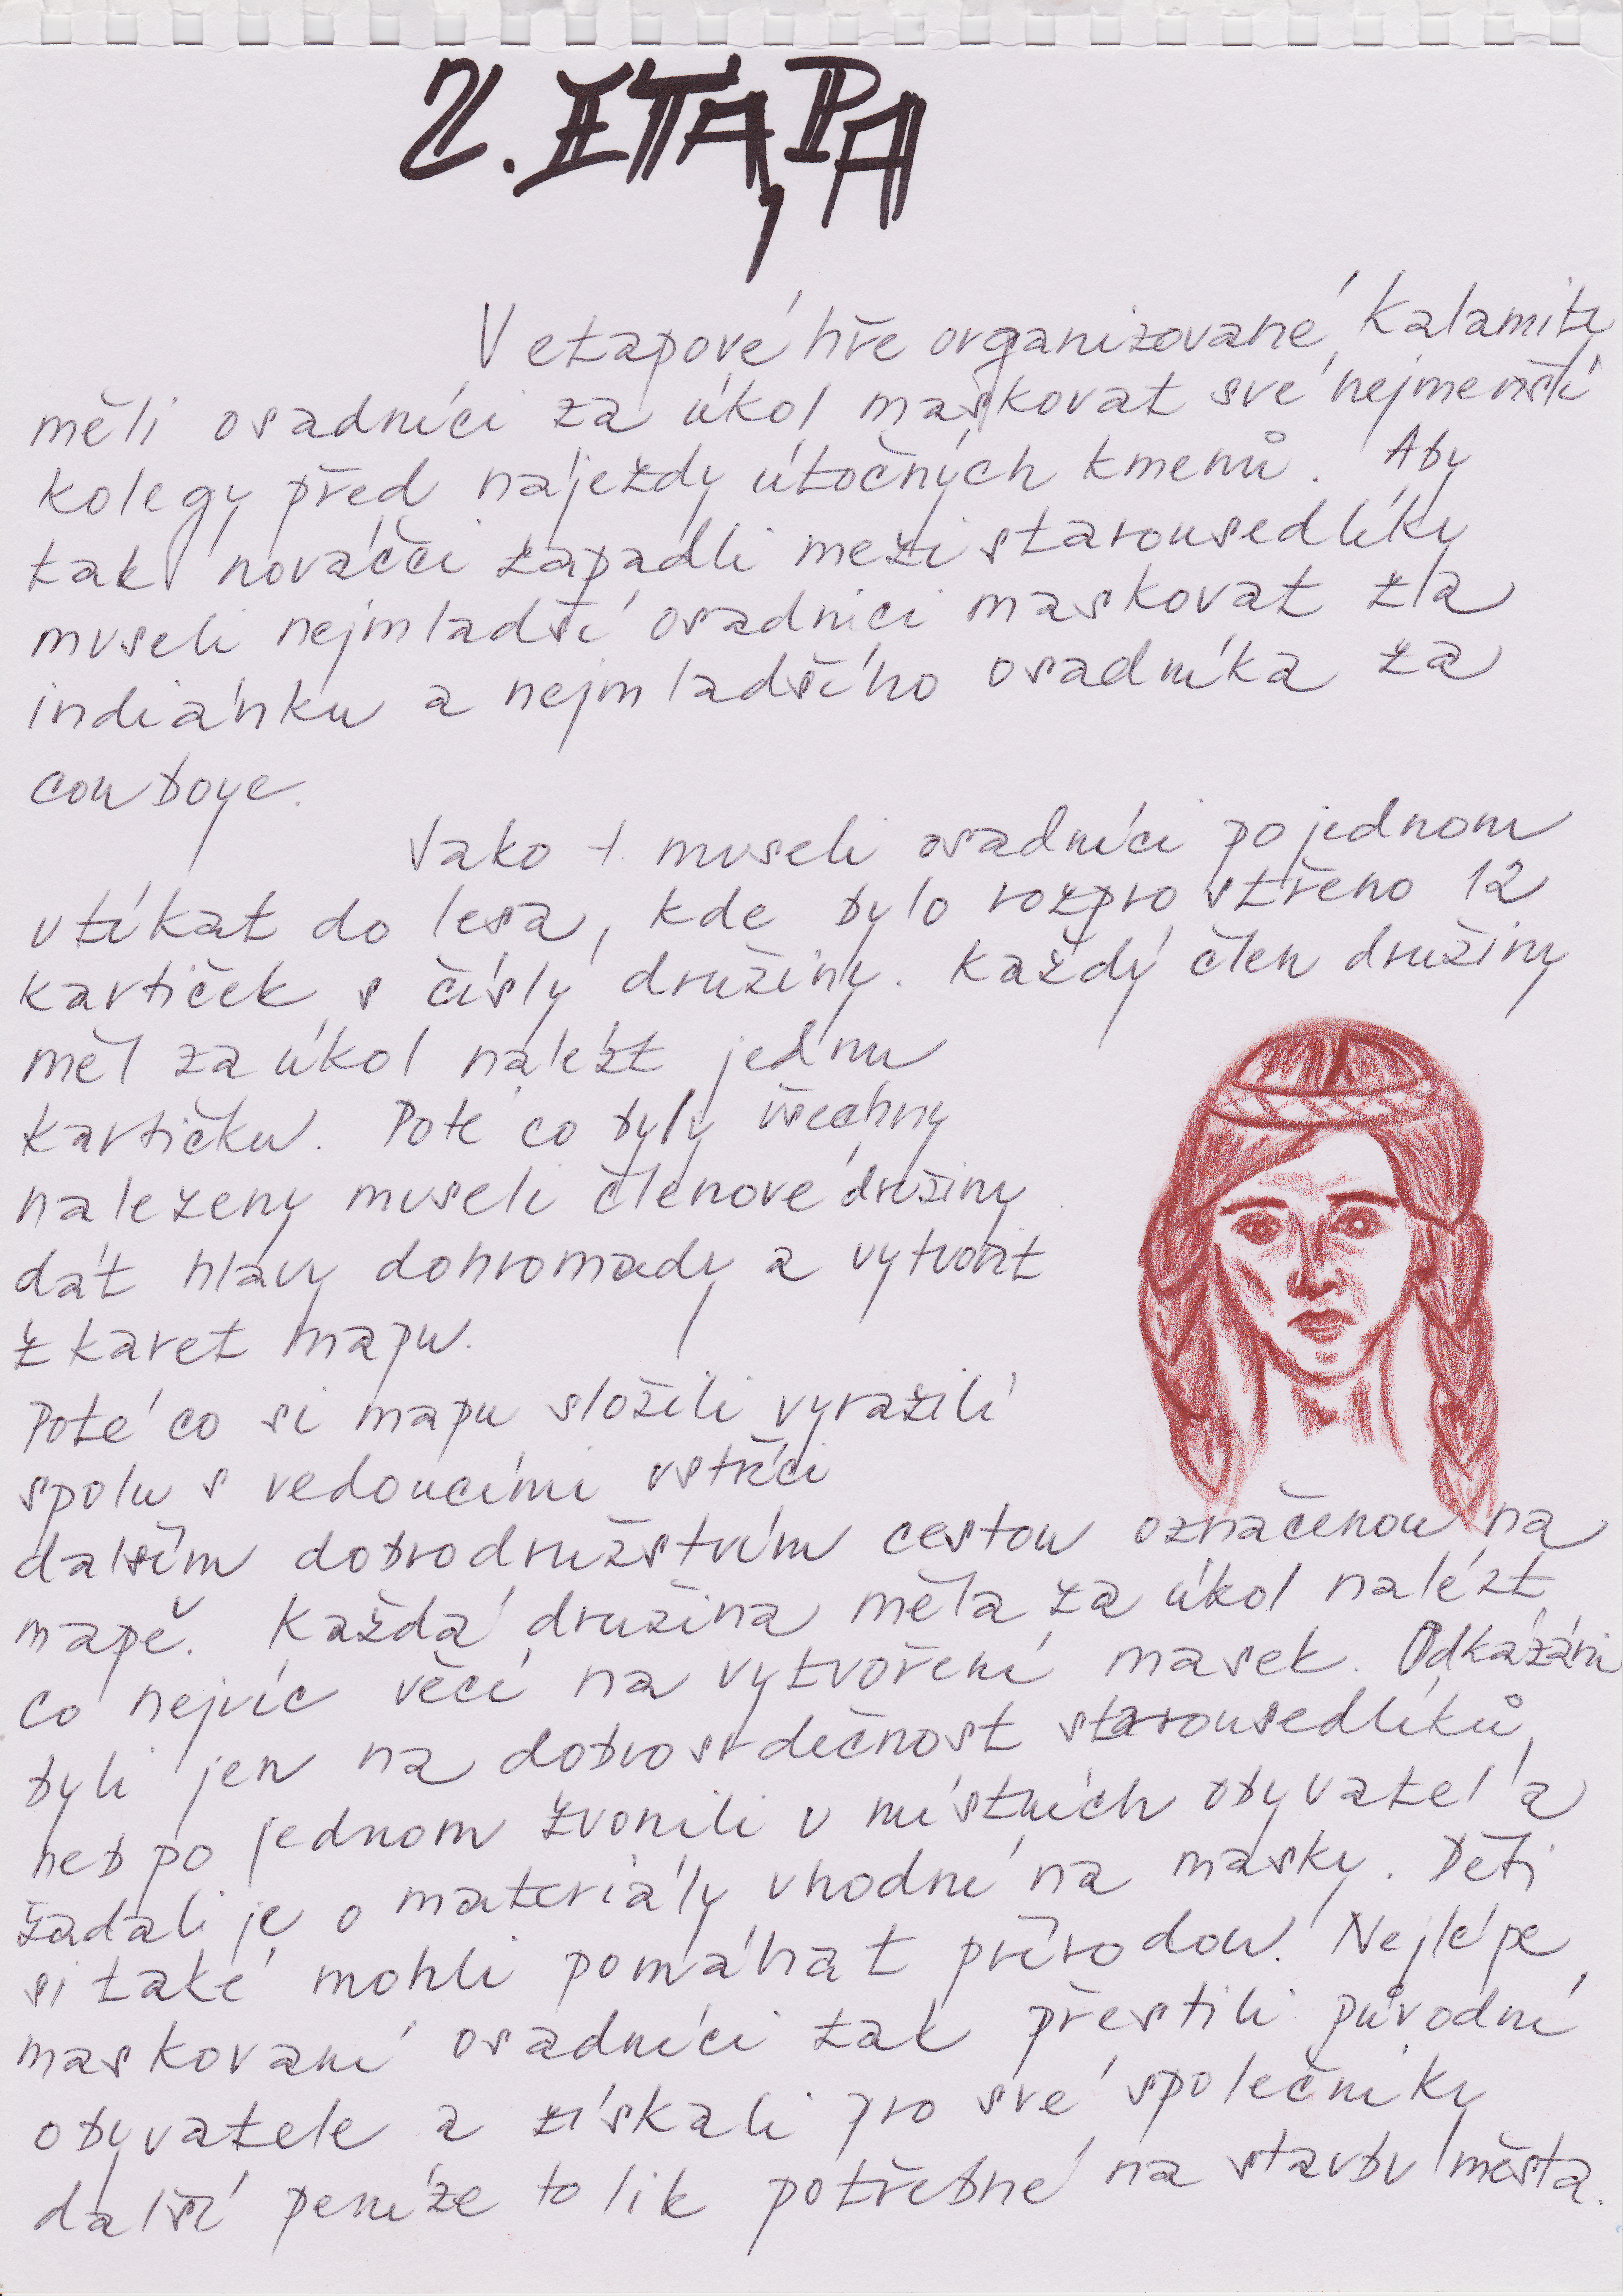 2. ETAPA
V etapové hře organizované Kalamity
měli osadníci za úkol maskovat své nejmenší
kolegy před nájezdy útočných kmenů. Aby
tak nováčci zapadli mezi starousedlíky
museli nejmladší osadnici maskovat za
indiánku a nejmladšího osadníka za
cowboye.
Jako 1. museli osadníci po jednom
utíkat do lesa, kde bylo rozprostřeno 12
kartiček s čísly družiny. Každý člen družiny
měl za úkol nalézt jednu
kartičku. Poté co byly všechny
nalezeny museli členové družiny
dát hlavy dohromady a vytvořit
z karet mapu.
Poté co si mapu složili vyrazili
spolu s vedoucími vstříci
dalším dobrodružstvím cestou označenou na
mapě. Každá družina měla za úkol nalézt
co nejvíc věcí na vytvoření masek. Odkázáni
byli jen na dobrosrdečnost starousedlíků,
neb po jednom zvonili u místních obyvatel a
žádali je o materiály vhodné na masky. Děti
si také mohli pomáhat přírodou. Nejlépe
maskovaní osadníci tak přestili původní
obyvatele a získali pro své společníky
další peníze tolik potřebné na stavbu města.